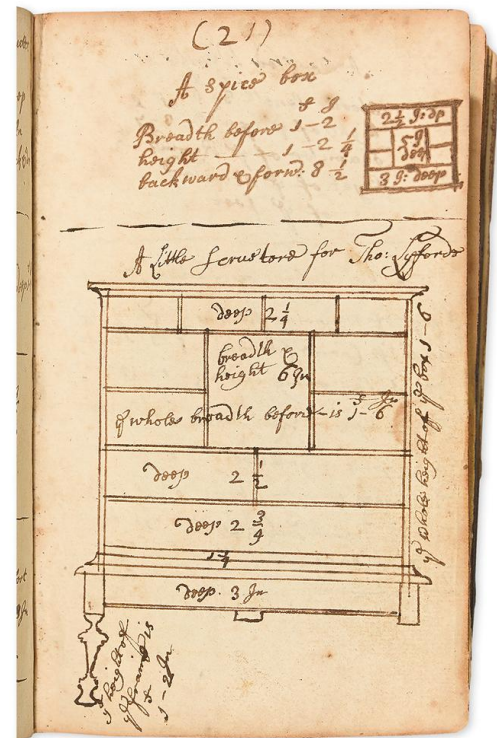 (21)
A Spice box
f J
Breadth before 1-2
height 1-2 1/4
backward & forw: 8 1/2
2 1/2 J: dp
5 J
deep
3 J: deep
A Little Scrustore for Tho: Lyfforde
deep 2 1/4
breadth &
height 6 Jn
f Jn
ye whole breadth before is 1-6
deep 2 1/2
deep 2 3/4
deep. 3 Jn
ye whole height of ye box 1-6
ye height of
ye frame is
f
1-2 Jn